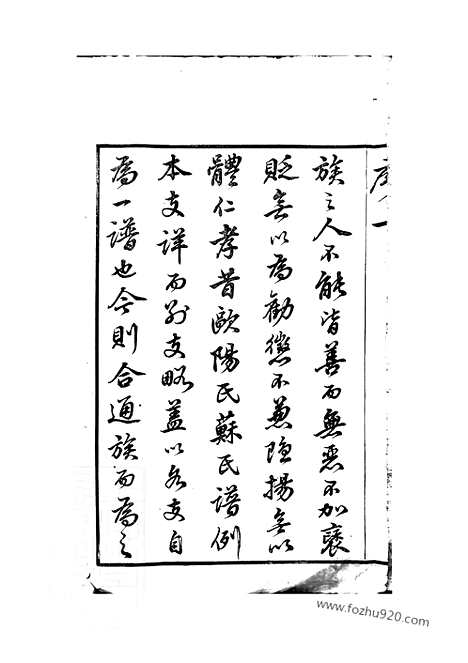 序一
族之人不能皆善而無惡不加襃
貶無以為勸懲不兼隱揚無以
體仁孝昔歐陽氏蘇氏譜例
本支詳而別支略蓋以各支自
為一譜也今則合通族而為之
www.fozhu920.com